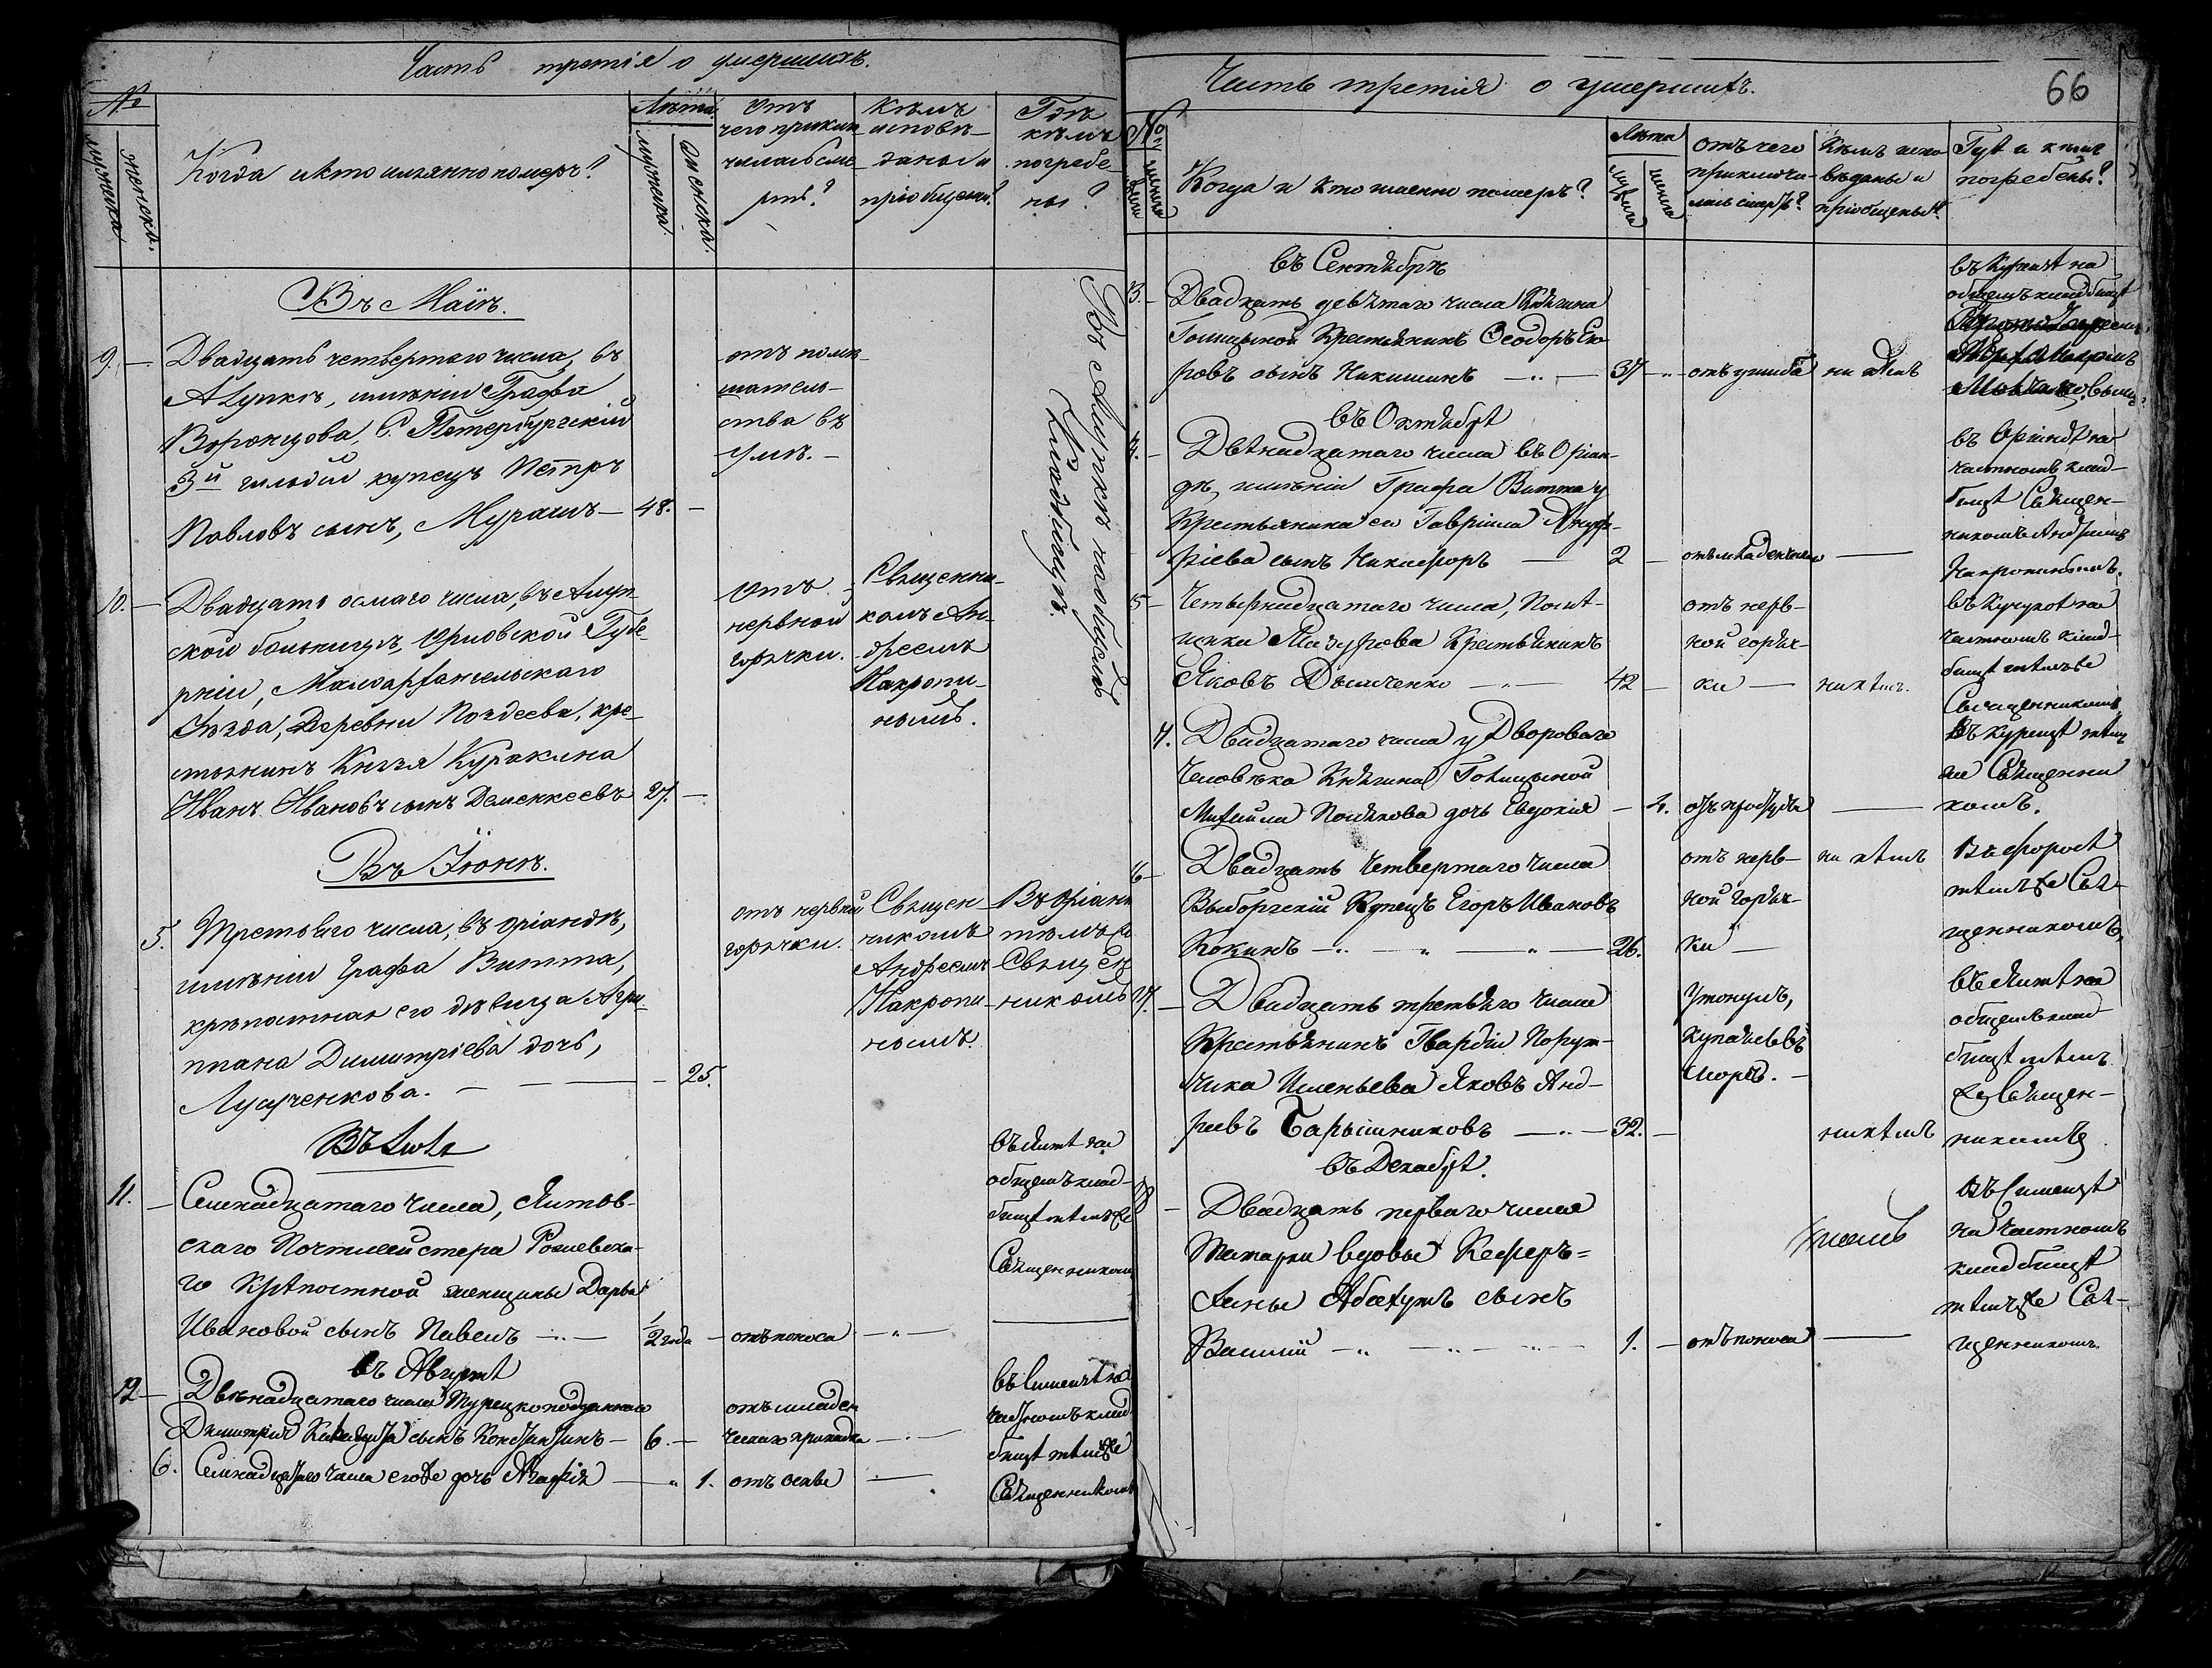 Часть третія о умершихъ.
№
мужеска
женска.
Когда и кто имянно померъ?
Лѣта
мужеска
женска.
Отъ
чего приклю
чиласьсме
рть?
Кѣмъ
исповѣ
даны и
пріобщены?
Гдѣ
кѣмъ
погребе
ны?
Въ Маіѣ.
9. — Двадцать четвертаго числа, въ
Алупкѣ, имѣніи Графа
Воронцова, С. Петербургскій
3й гильдіи купецъ Петръ
Павловъ сынъ, — 48. —
отъ поми
шатель—
ства въ
умѣ. —
Въ Алупкѣ на общемъ
Кладбищѣ.
10. — Двадцать осмаго числа, въ Алуп
ской больницѣ, Орловской Губе
рніи, Малоархангельскаго
Уѣзда, Деревни Поздеева, кре
стьянинъ Князя Куракина
Иванъ Ивановъ сынъ 27. —
Отъ
нервной
горячки.
Священни—
комъ Ан—
дреемъ
Накропи—
нымъ.
Въ Іюнѣ.
5. Третьяго числа, въ Оріандѣ,
имѣніи Графа Витта,
крѣпостная его дѣвица Агри
ппана Димитріева дочь,
Лущенкова. — — 25.
отъ нервной
горячки.
Священ
никомъ
Андреемъ
Накропи
нымъ.
Въ Оріанд
тѣмъ же
Священ
никомъ
Въ Іюлѣ
11. — Семнадцатаго числа, Ялтов-
скаго Почтмейстера
го Крѣпостной женщины Дарьи
Ивановой сынъ Павелъ — 1/2 года — отъ поноса —
въ Ялтѣ на
общемъ клад-
бищѣ тѣмъ же
Священникомъ
въ Августѣ
12 — Двѣнадцатаго числа Турецкоподданнаго
Димитрія сынъ Константинъ — 6. —
отъ младен
ческаго припадка —
въ Симеизѣ на
частномъ клад
бищѣ тѣмъ же
Священникомъ
6. Семнадцатаго числа егоже дочь Агафія — " 1. отъ оспы —
Часть третія о умершихъ.
66
№
Когда и кто именно померъ?
Лѣта
отъ чего
приключи-
лась смерть?
Кѣмъ испо
вѣданы и
пріобщены?
Гдѣ и кѣмъ
погребены?
въ Сентябрѣ
3. — Двадцать девятаго числа Княгини
Голицыной Крестьянинъ Ѳеодоръ Его
ровъ сынъ Никишинъ — 37 — отъ ушиба ни кѣмъ
въ Кореизѣ на
общемъ кладбищѣ
въ Октябрѣ
4. — Двѣнадцатаго числа въ Оріан-
дѣ, имѣніи Графа Витта у
Крестьянина его Гавріила Ануф-
ріева сынъ Никифоръ — 2 — —
въ Оріандѣ на
частномъ клад-
бищѣ Священ-
никомъ Андреемъ
Накропинымъ.
5 — Четырнадцатаго числа, Помѣ-
щика Крестьянинъ
Яковъ Дымченко — 42 —
отъ нерв-
ной горяч-
ки — никѣмъ.
частномъ клад-
бищѣ тѣмъже
Священникомъ
7. Двадцатаго числа у Двороваго
Человѣка Княгини Голицыной
Михаила Полякова дочь Евдокія — 4. отъ простуды —
Въ Кореизѣ тѣмъ
же Священни
комъ.
6 — Двадцать Четвертаго числа
Выборгскій Купецъ Егоръ Ивановъ
Кокинъ — 26.
отъ нерв—
ной горяч-
ки —
ни кѣмъ
Въ Форосѣ
тѣмъ же Свя-
щенникомъ
17. — Двадцать третьяго числа
Крестьянинъ Гвардіи Поруч-
чика Яковъ Анд-
реевъ Барышниковъ — 32. —
Утонулъ,
купаясь въ
морѣ. —
никѣмъ
въ Ялтѣ на
общемъ клад
бищѣ тѣмъ
же Священ—
никомъ
въ Декабрѣ.
18 — Двадцать перваго числа
Татарки вдовы
сынъ
Василій — 1. — отъ поноса —
Въ Симеизѣ
на частномъ
кладбищѣ
тѣмъ же Свя-
щенникомъ